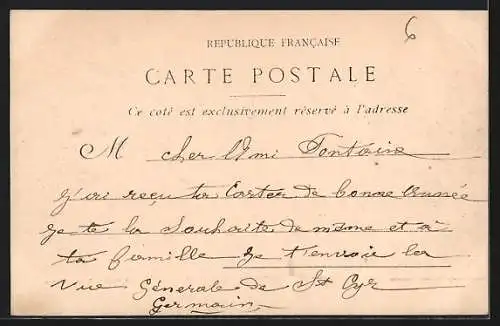 6
REPUBLIQUE FRANÇAISE
CARTE POSTALE
Ce coté est exclusivement réservé à l'adresse
M cher Ami Fontaine
J'ai reçu ta Carter de bonne Année
je te la Souhaite de même et à
ta famille je t'envoie la
vue Générale de St Cyr
Germain